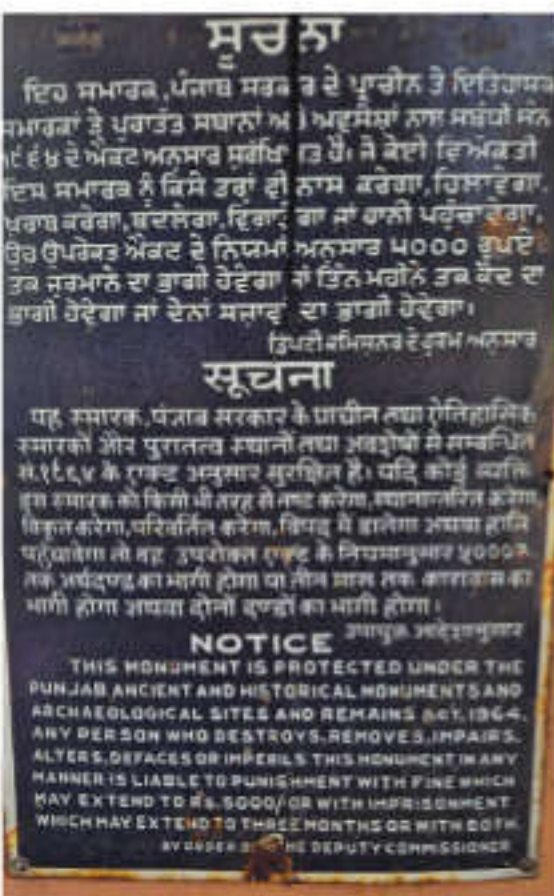 ਸੂਚਨਾ
ਇਹ ਸਮਾਰਕ, ਪੰਜਾਬ ਸਰਕਾਰ ਦੇ ਪ੍ਰਾਚੀਨ ਤੇ ਇਤਿਹਾਸਕ
ਸਮਾਰਕਾਂ ਤੇ ਪੁਰਾਤੱਤ ਸਥਾਨਾਂ ਅਤੇ ਅਵਸ਼ੇਸ਼ਾਂ ਨਾਲ ਸਬੰਧੀ ਸੰਨ
੧੯੬੪ ਦੇ ਐਕਟ ਅਨੁਸਾਰ ਸੁਰੱਖਿਅਤ ਹੈ। ਜੇ ਕੋਈ ਵਿਅਕਤੀ
ਇਸ ਸਮਾਰਕ ਨੂੰ ਕਿਸੇ ਤਰ੍ਹਾਂ ਵੀ ਨਾਸ ਕਰੇਗਾ, ਹਿਲਾਵੇਗਾ,
ਖਰਾਬ ਕਰੇਗਾ, ਬਦਲੇਗਾ, ਵਿਗਾੜੇਗਾ ਜਾਂ ਹਾਨੀ ਪਹੁੰਚਾਵੇਗਾ,
ਉਹ ਉਪਰੋਕਤ ਐਕਟ ਦੇ ਨਿਯਮਾਂ ਅਨੁਸਾਰ ੫000 ਰੁਪਏ
ਤਕ ਜੁਰਮਾਨੇ ਦਾ ਭਾਗੀ ਹੋਵੇਗਾ ਜਾਂ ਤਿੰਨ ਮਹੀਨੇ ਤਕ ਕੈਦ ਦਾ
ਭਾਗੀ ਹੋਵੇਗਾ ਜਾਂ ਦੋਨਾਂ ਸਜ਼ਾਵਾਂ ਦਾ ਭਾਗੀ ਹੋਵੇਗਾ।
ਡਿਪਟੀ ਕਮਿਸ਼ਨਰ ਦੇ ਹੁਕਮ ਅਨੁਸਾਰ
सूचना
यह स्मारक, पंजाब सरकार के प्राचीन तथा ऐतिहासिक
स्मारकों और पुरातत्व स्थानों तथा अवशेषों से सम्बन्धित
सं. १९६४ के एक्ट अनुसार सुरक्षित है। यदि कोई व्यक्ति
इस स्मारक को किसी भी तरह से नष्ट करेगा, स्थानान्तरित करेगा
विकृत करेगा, परिवर्तित करेगा, विपद् में डालेगा अथवा हानि
पहुंचावेगा तो वह उपरोक्त एक्ट के नियमानुसार ५०००रु.
तक अर्थदण्ड का भागी होगा या तीन मास तक कारावास का
भागी होगा अथवा दोनों दण्डों का भागी होगा।
उपायुक्त आदेशानुसार
NOTICE
THIS MONUMENT IS PROTECTED UNDER THE
PUNJAB ANCIENT AND HISTORICAL MONUMENTS AND
ARCHAEOLOGICAL SITES AND REMAINS ACT, 1964.
ANY PERSON WHO DESTROYS, REMOVES, IMPAIRS,
ALTERS, DEFACES OR IMPERILS THIS MONUMENT IN ANY
MANNER IS LIABLE TO PUNISHMENT WITH FINE WHICH
MAY EXTEND TO Rs. 5000/ OR WITH IMPRISONMENT
WHICH MAY EXTEND TO THREE MONTHS OR WITH BOTH.
BY ORDER THE DEPUTY COMMISSIONER